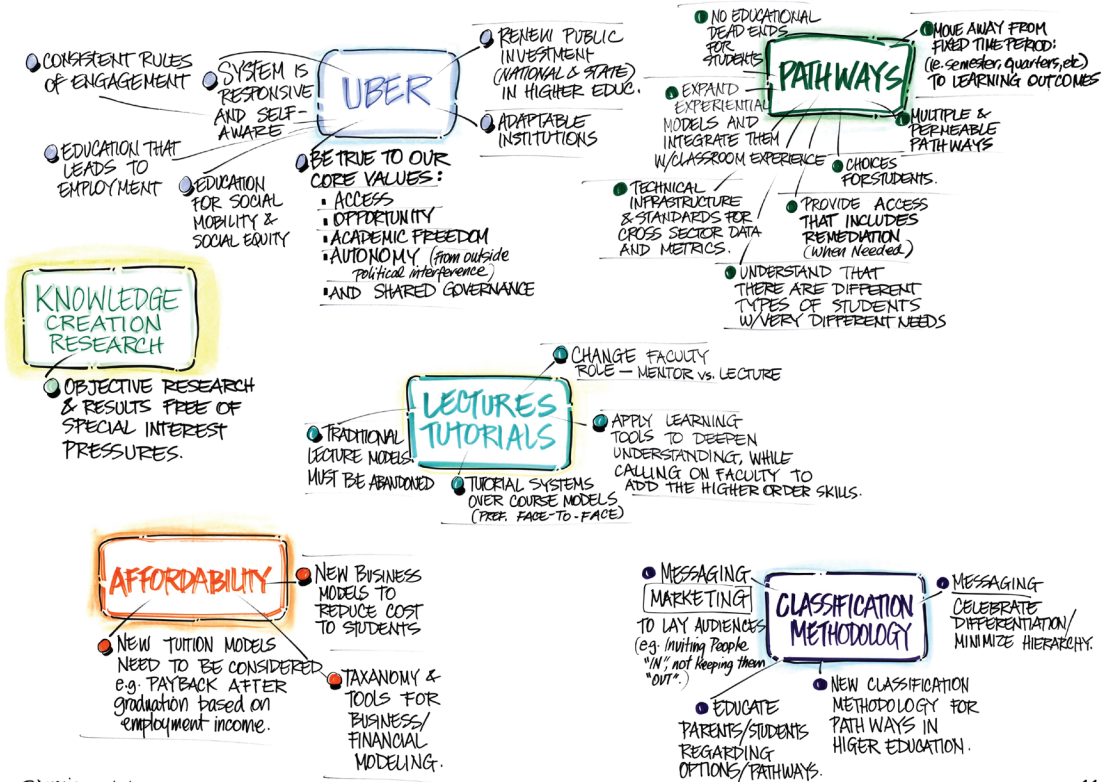 CONSISTENT RULES
OF ENGAGEMENT
SYSTEM IS
RESPONSIVE
AND SELF-
AWARE
EDUCATION THAT
LEADS TO
EMPLOYMENT
EDUCATION
FOR SOCIAL
MOBILITY &
SOCIAL EQUITY
UBER
RENEW PUBLIC
INVESTMENT
(NATIONAL & STATE)
IN HIGHER EDUC.
ADAPTABLE
INSTITUTIONS
BE TRUE TO OUR
CORE VALUES:
▪ ACCESS
▪ OPPORTUNITY
▪ ACADEMIC FREEDOM
▪ AUTONOMY (from outside
political interference)
▪ AND SHARED GOVERNANCE
NO EDUCATIONAL
DEAD ENDS
FOR
STUDENTS
PATHWAYS
MOVE AWAY FROM
FIXED TIME PERIOD:
(ie. semester, quarters, etc)
TO LEARNING OUTCOMES
EXPAND
EXPERIENTIAL
MODELS AND
INTEGRATE THEM
W/CLASSROOM EXPERIENCE
MULTIPLE &
PERMEABLE
PATHWAYS
CHOICES
FOR STUDENTS.
TECHNICAL
INFRASTRUCTURE
& STANDARDS FOR
CROSS SECTOR DATA
AND METRICS.
PROVIDE ACCESS
THAT INCLUDES
REMEDIATION
(When Needed.)
UNDERSTAND THAT
THERE ARE DIFFERENT
TYPES OF STUDENTS
W/VERY DIFFERENT NEEDS
KNOWLEDGE
CREATION
RESEARCH
OBJECTIVE RESEARCH
& RESULTS FREE OF
SPECIAL INTEREST
PRESSURES.
LECTURES
TUTORIALS
CHANGE FACULTY
ROLE — MENTOR VS. LECTURE
TRADITIONAL
LECTURE MODELS
MUST BE ABANDONED
APPLY LEARNING
TOOLS TO DEEPEN
UNDERSTANDING, WHILE
CALLING ON FACULTY TO
ADD THE HIGHER ORDER SKILLS.
TUTORIAL SYSTEMS
OVER COURSE MODELS
(PREF. FACE-TO-FACE)
AFFORDABILITY
NEW BUSINESS
MODELS TO
REDUCE COST
TO STUDENTS
NEW TUITION MODELS
NEED TO BE CONSIDERED
e.g. PAYBACK AFTER
graduation based on
employment income.
TAXANOMY &
TOOLS FOR
BUSINESS/
FINANCIAL
MODELING.
CLASSIFICATION
METHODOLOGY
MESSAGING
MARKETING
TO LAY AUDIENCES
(e.g. Inviting People
"IN" not keeping them
"OUT".)
MESSAGING
CELEBRATE
DIFFERENTIATION/
MINIMIZE HIERARCHY.
EDUCATE
PARENTS/STUDENTS
REGARDING
OPTIONS/PATHWAYS.
NEW CLASSIFICATION
METHODOLOGY FOR
PATHWAYS IN
HIGER EDUCATION.